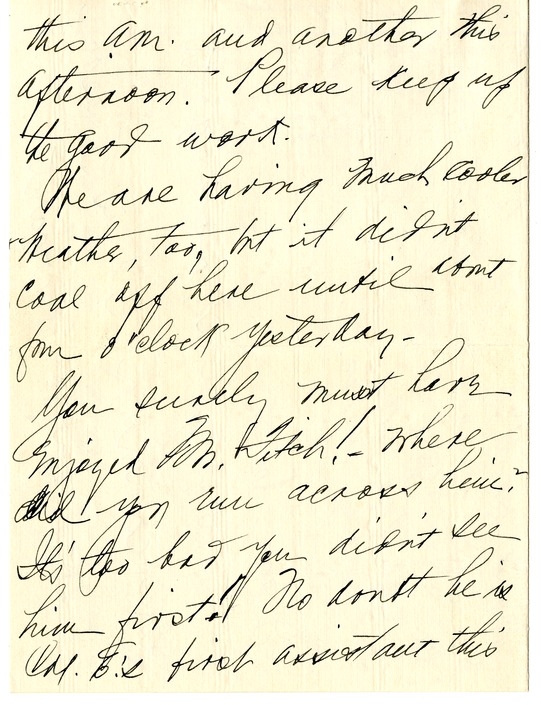 this am. and another this
afternoon. Please keep up
the good work.
We are having much cooler
weather, too, but it didn't
cool off here until about
four o'clock yesterday -
You surely must have
enjoyed Mr. Fitch! - Where
did you run across him?
It's too bad you didn't see
him first! No doubt he is
Col. B.'s first assistant this